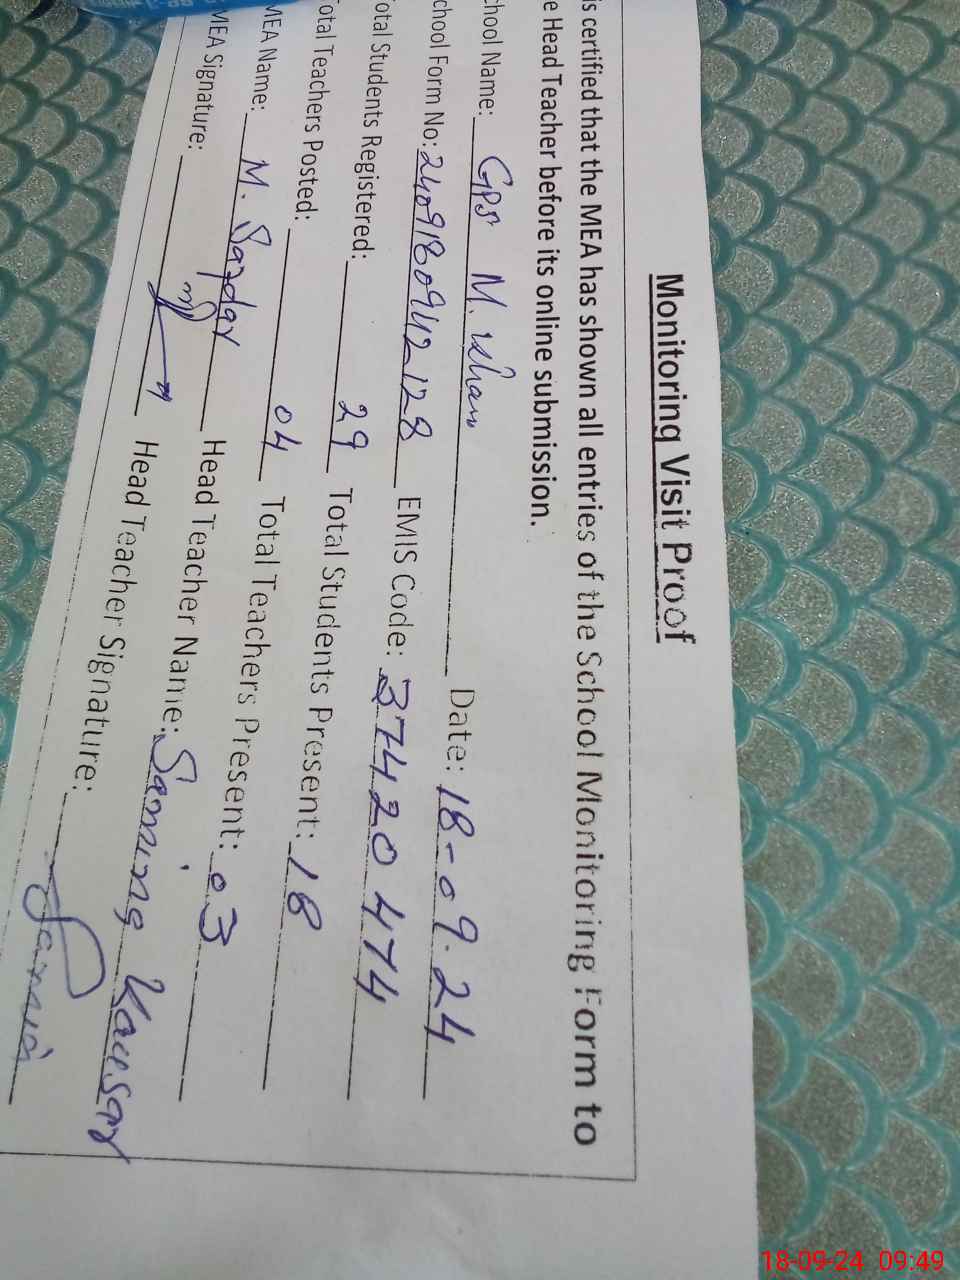 Monitoring Visit Proof
is certified that the MEA has shown all entries of the School Monitoring Form to
e Head Teacher before its online submission.
chool Name: GPS M. Khan Date: 18-09.24
chool Form No: 240918094212128 EMIS Code: 37420474
otal Students Registered: 29 Total Students Present: 18
otal Teachers Posted: 04 Total Teachers Present: 03
MEA Name: M. Safdar Head Teacher Name: Samina Kausar
MEA Signature: Head Teacher Signature: Samina
18-09-24 09:49